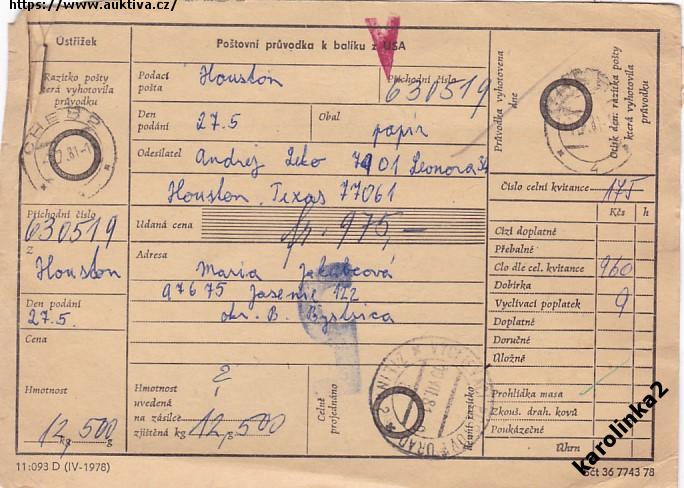 https://www.auktiva.cz/
Ústřižek
Razítko pošty
která vyhotovila
průvodku
CHEB 2
81
Příchodní číslo
630519
z
Houston
Den podání
27.5.
Cena
Hmotnost
12 kg 500 g
11·093 D (IV-1978)
Poštovní průvodka k balíku z USA
Podací
pošta
Houston
Příchodní číslo
630519
Den
podání
27.5
Obal
papír
Odesílatel
Andrej Leko 7901 Leonora
Houston, Texas 77061
Udaná cena
975,-
Adresa
Maria Jakubcová
97675 Jasenie 122
okr. B. Bystrica
2
Hmotnost
uvedená
na zásilce
zjištěná kg
12,500
Celně
projednáno
Denní razítko
Průvodka vyhotovena
dne
Otisk den. razítka pošty
která vyhotovila
průvodku
Číslo celní kvitance
175
Kčs
h
Cizí doplatné
Přebalné
Clo dle cel. kvitance
960
Dobírka
Vyclívací poplatek
9
Doplatné
Doručné
Úložné
Prohlídka masa
Zkouš. drah. kovů
Poukázečné
Úhrn
Sčt 36 7743 78
karolinka2